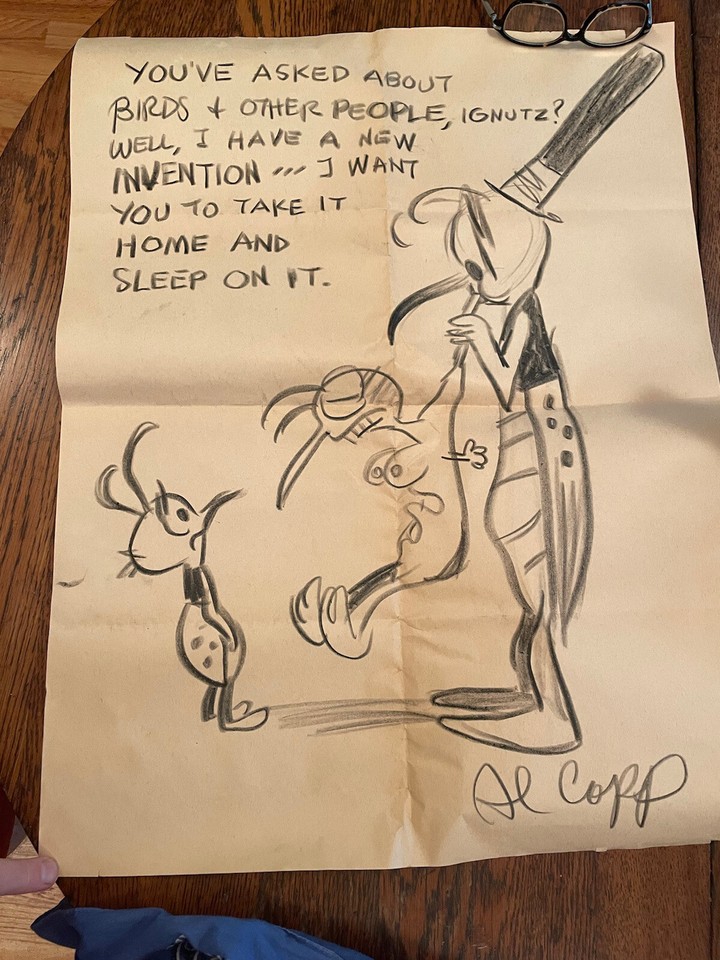 YOU'VE ASKED ABOUT
BIRDS + OTHER PEOPLE, IGNUTZ?
WELL, I HAVE A NEW
INVENTION ... I WANT
YOU TO TAKE IT
HOME AND
SLEEP ON IT.
Al Capp